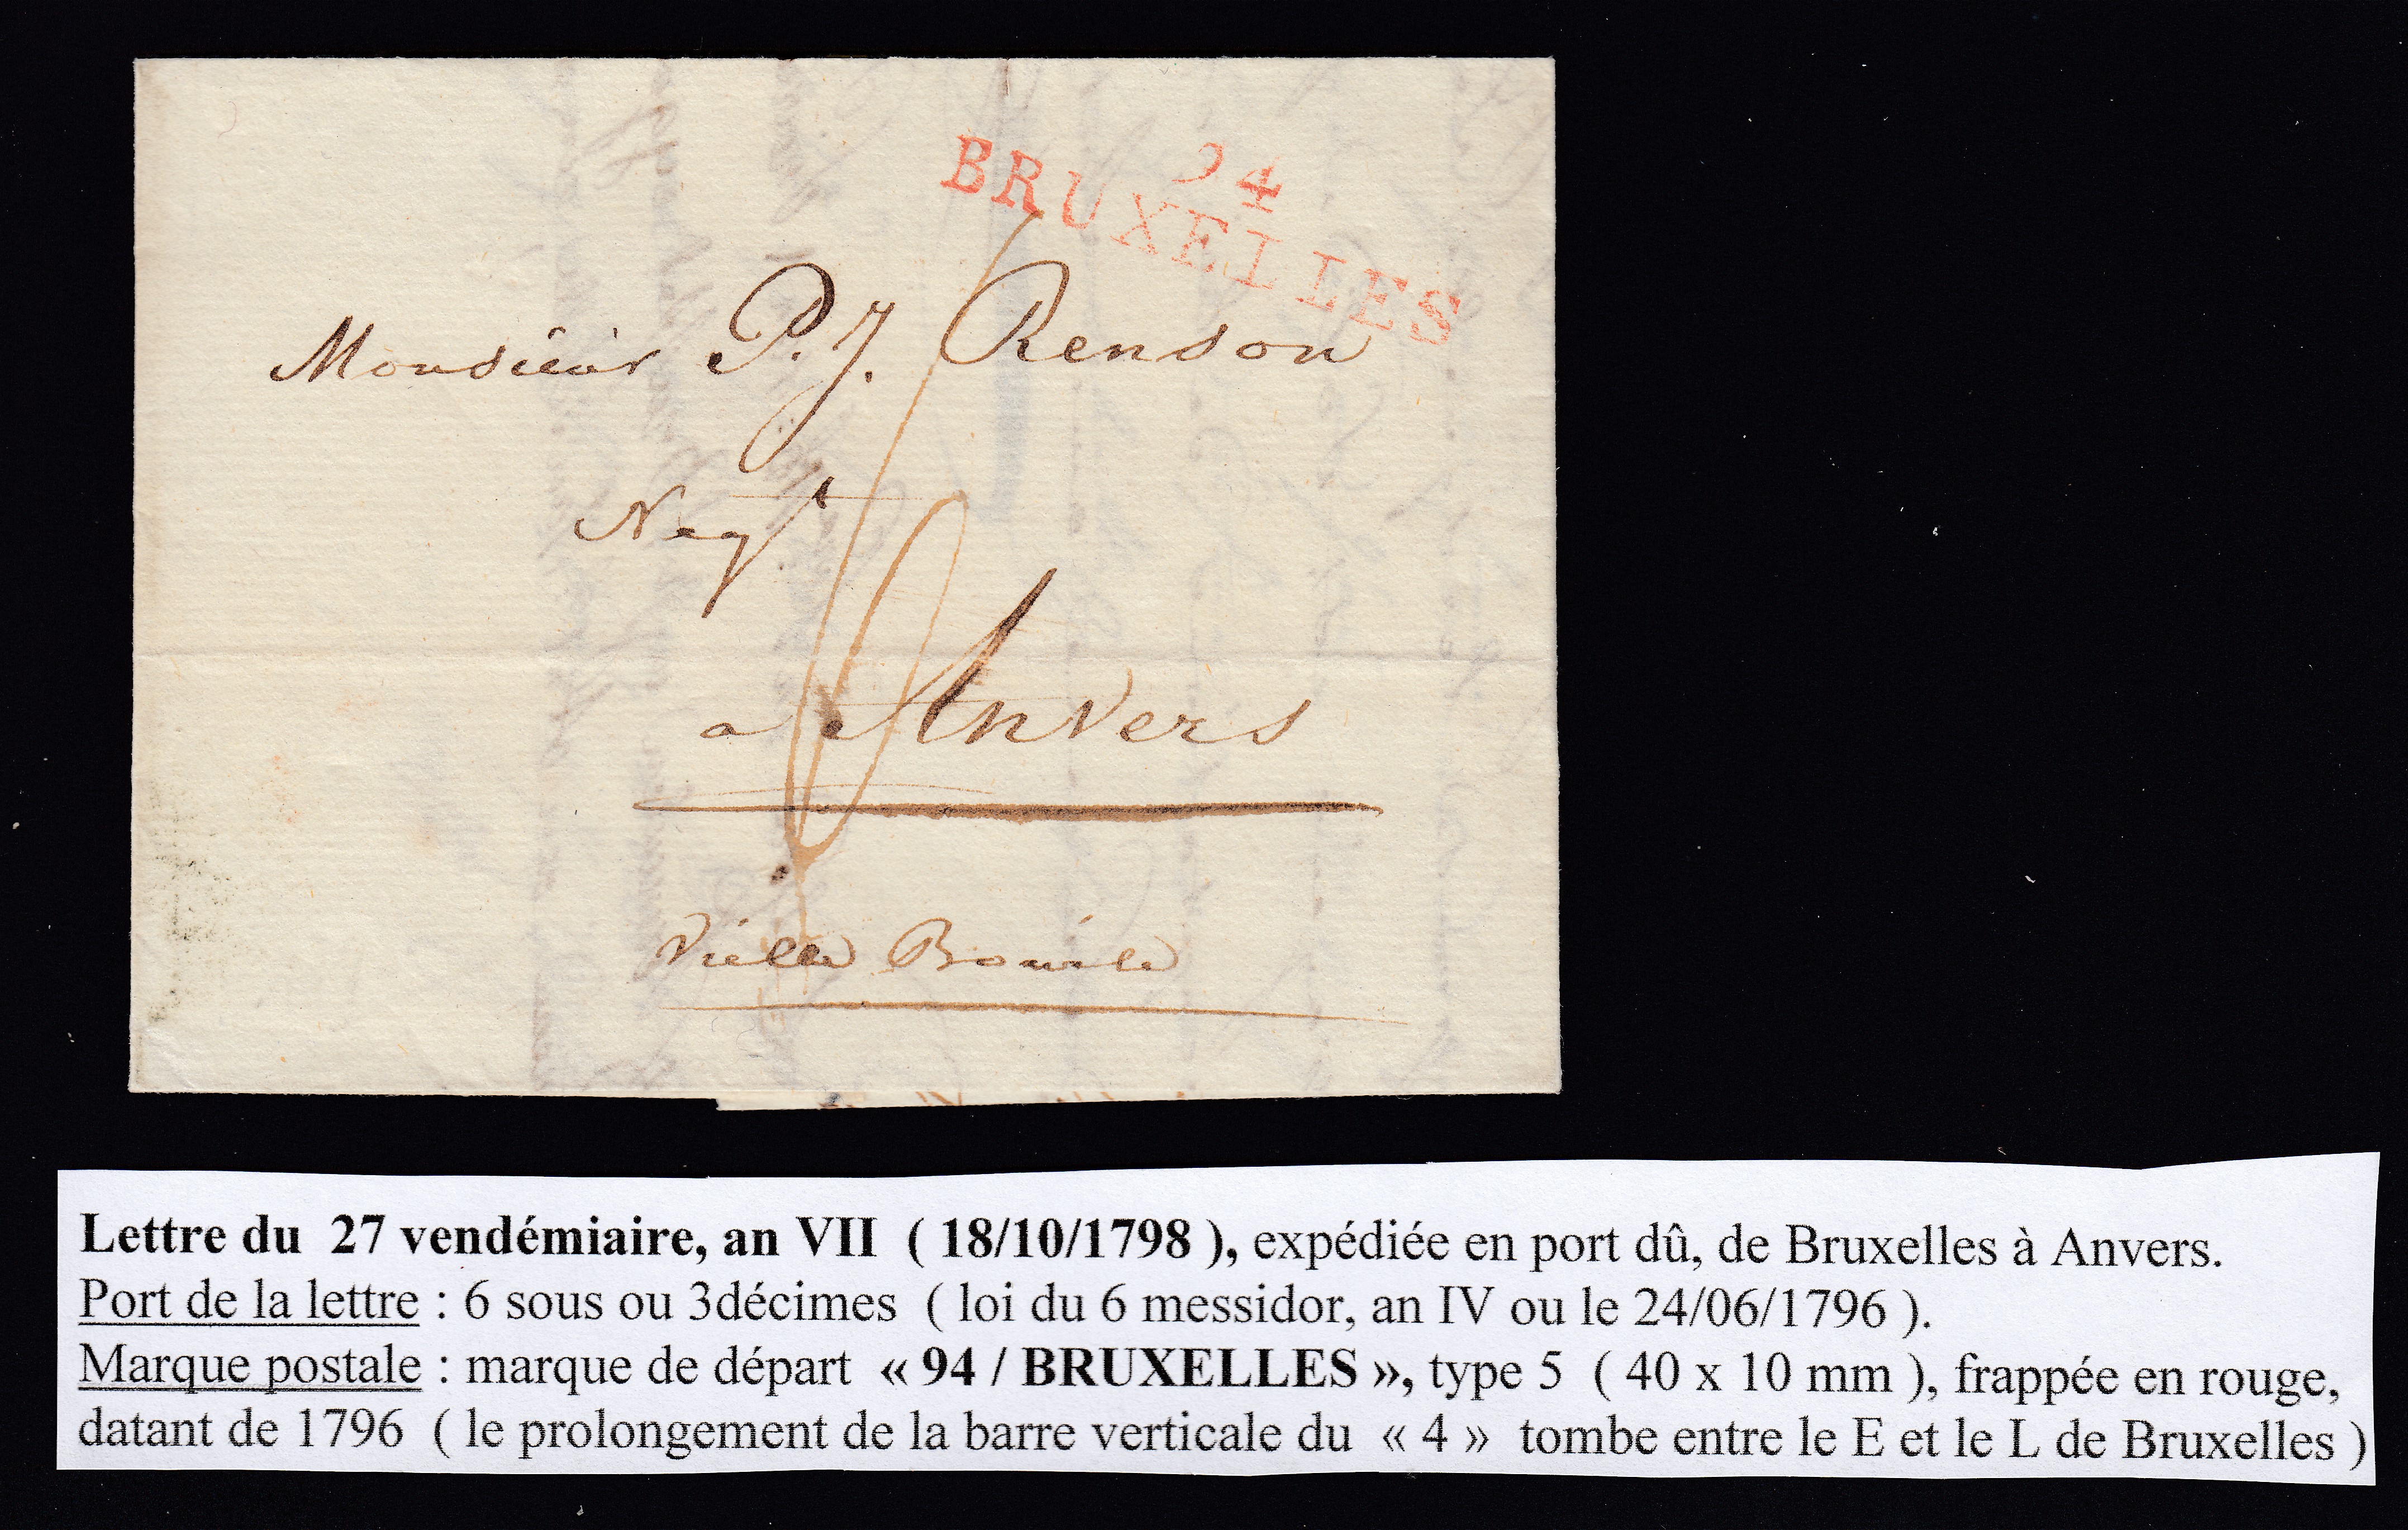 94
BRUXELLES
Monsieur P. J. Renson
Negt
a Anvers
Vielle Bourse
Lettre du 27 vendémiaire, an VII ( 18/10/1798 ), expédiée en port dû, de Bruxelles à Anvers.
Port de la lettre : 6 sous ou 3décimes ( loi du 6 messidor, an IV ou le 24/06/1796 ).
Marque postale : marque de départ « 94 / BRUXELLES », type 5 ( 40 x 10 mm ), frappée en rouge,
datant de 1796 ( le prolongement de la barre verticale du « 4 » tombe entre le E et le L de Bruxelles )